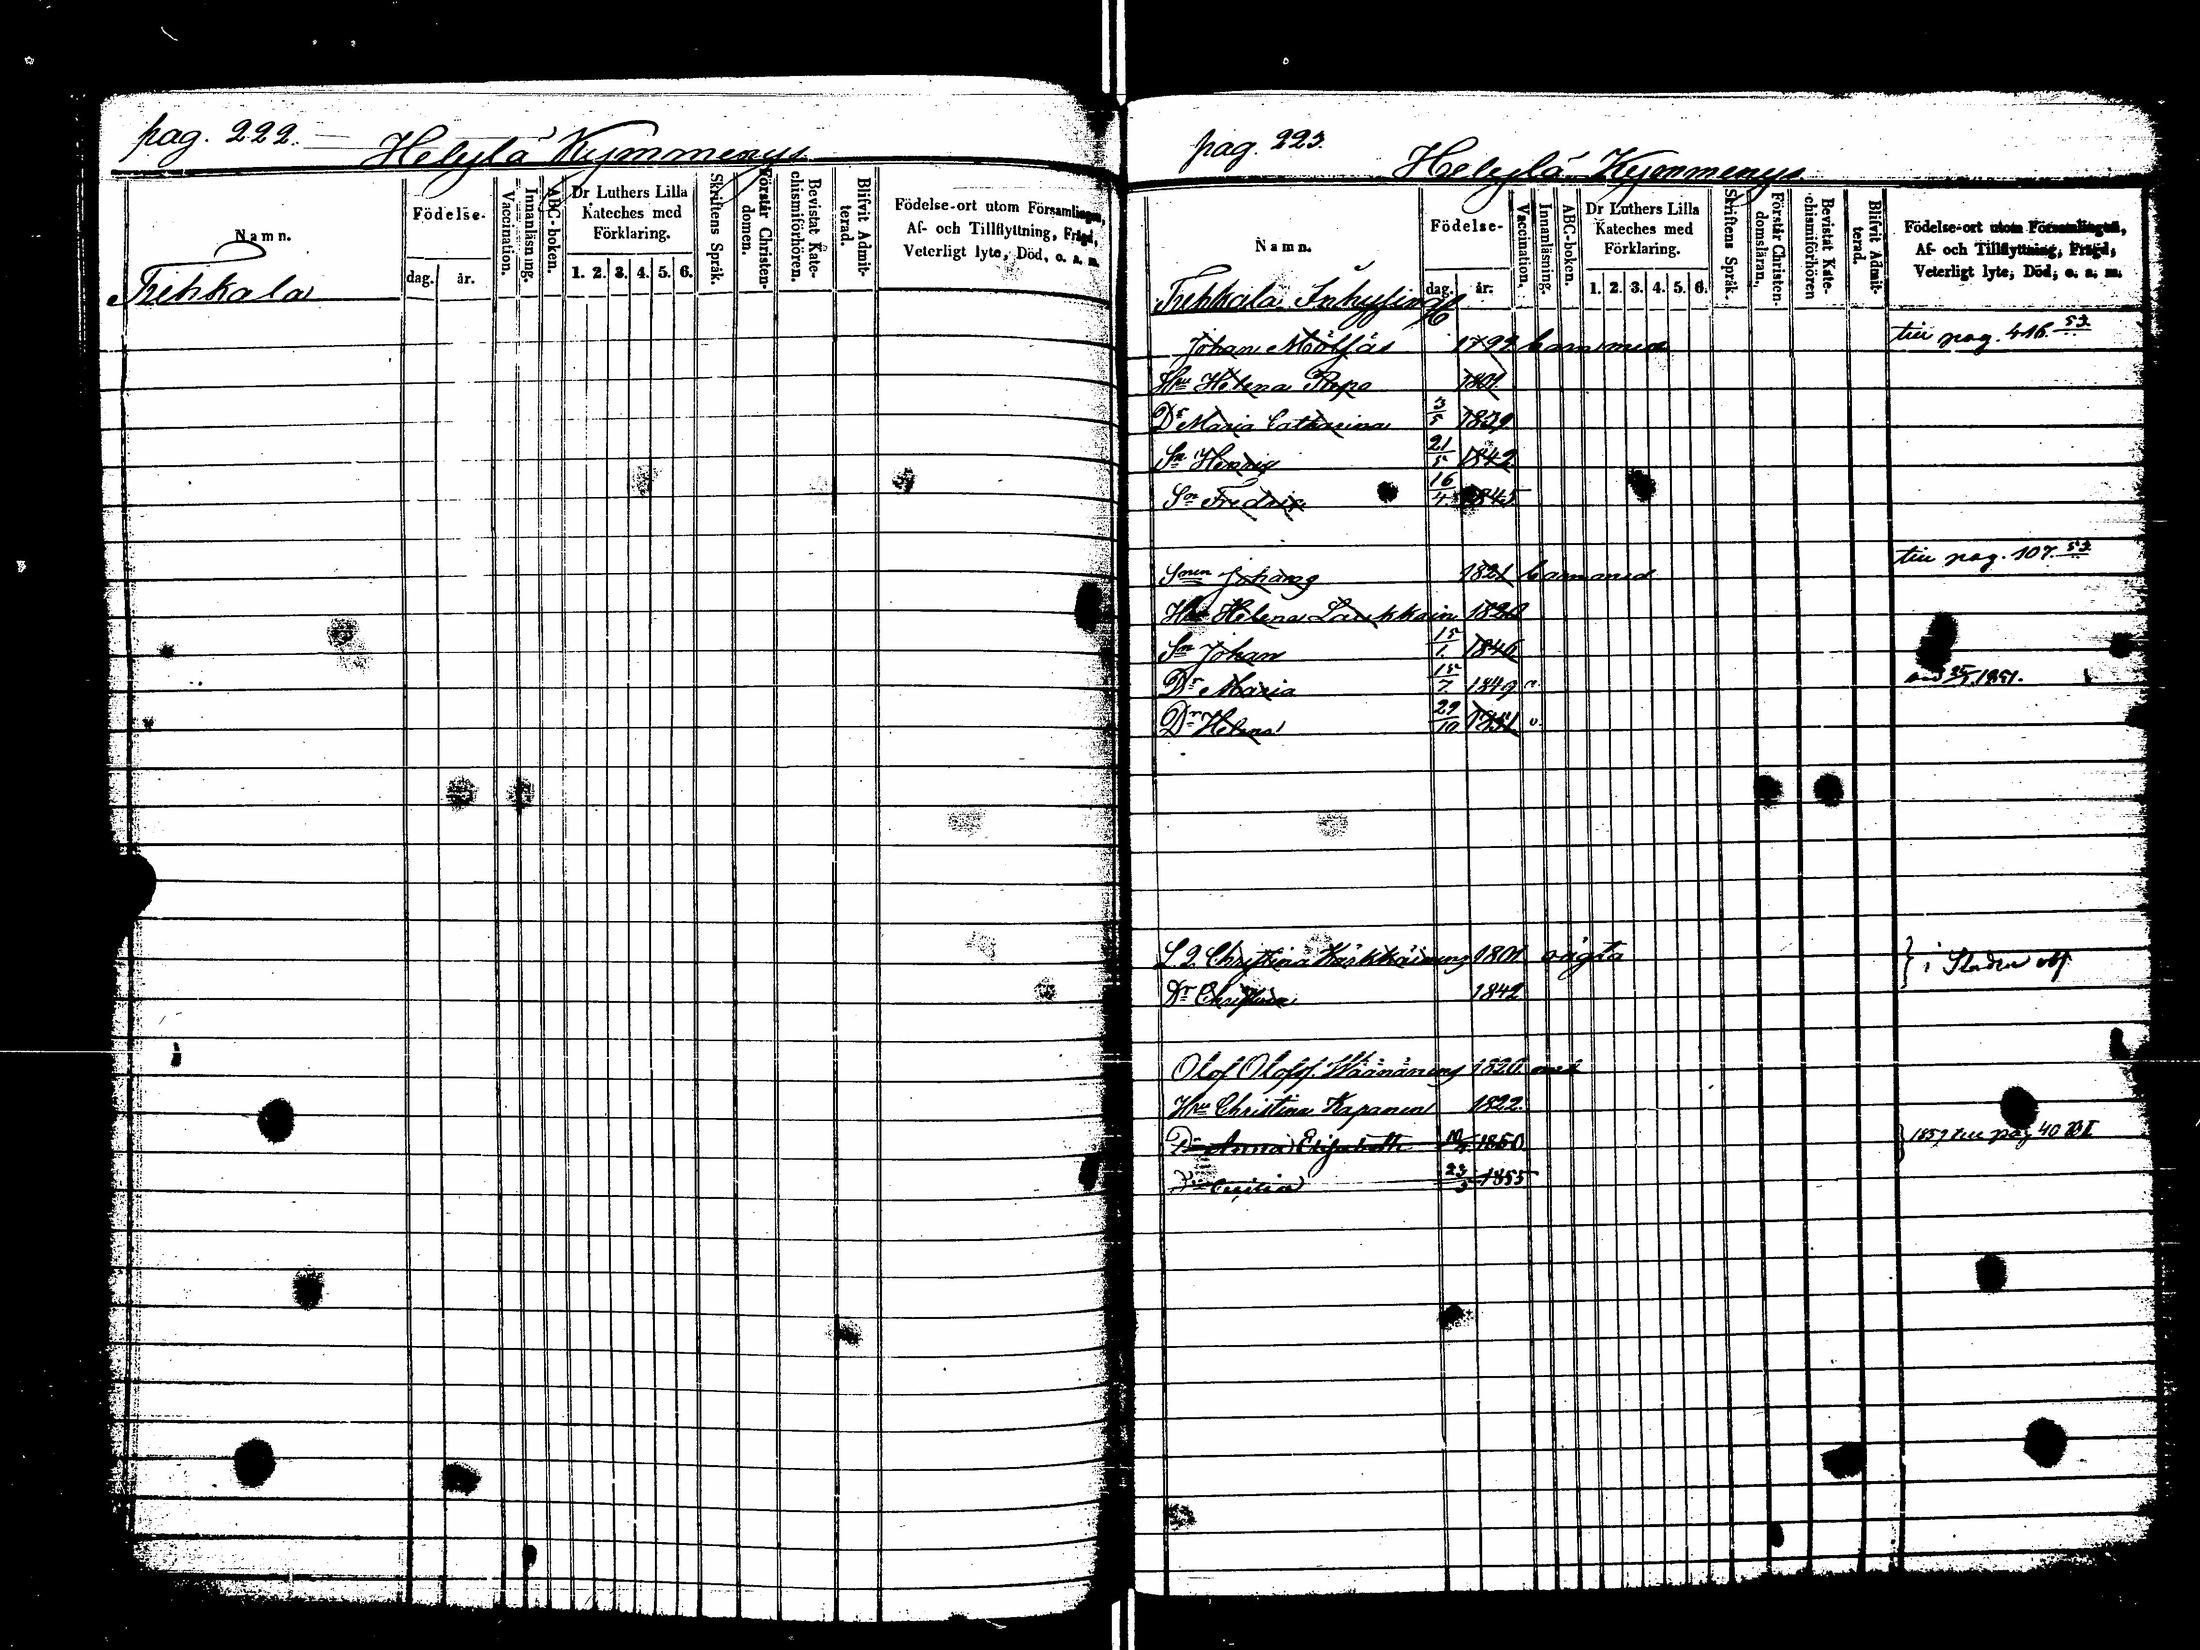 pag. 222.
Helylä Kymmenys
Namn.
Födelse-
dag.
år.
Vaccination.
Innanläsning.
ABC-boken.
Dr Luthers Lilla
Kateches med
Förklaring.
1. 2. 3. 4. 5. 6.
Skriftens Språk.
Förstår Christen-
domen.
Bevistat Kate-
chismiförhören.
Blifvit Admit-
terad.
Födelse-ort utom Församlingen,
Af- och Tillflyttning, Frägd,
Veterligt lyte, Död, o. s. m.
Tirkkala
pag. 223.
Helylä Kymmenys
Namn.
Födelse-
dag.
år.
Vaccination.
Innanläsning.
ABC-boken.
Dr Luthers Lilla
Kateches med
Förklaring.
1. 2. 3. 4. 5. 6.
Skriftens Språk.
Förstår Christen-
domsläran.
Bevistat Kate-
chismiförhören
Blifvit Admit-
terad.
Födelse-ort utom Församlingen,
Af- och Tillflyttning, Frägd,
Veterligt lyte, Död, o. s. m.
Tirkkala Inhysing
Johan 1792 till pag. 416. 53
Hru Helena Repo 1801
Dr Maria Catharina 3/5 1839
Sn Henrig 21/5 1842
Sn Fredric 16/4 1845
Johan 1821 till pag. 107. 53
Hru Helena Laukkain 1820
Sn Johan 15/1 1846
Dr Maria 15/7 1849 1851.
Dr Helena 29/10 1851 v.
Christina 1801 vägta
Dr Christina 1842
Olof Olofsf. Wäänäneng 1820
Hru Christina Kapanen 1822.
Dr Anna Elisabeth 1850 1857 till pag 40
Cecilia 23/3 1855